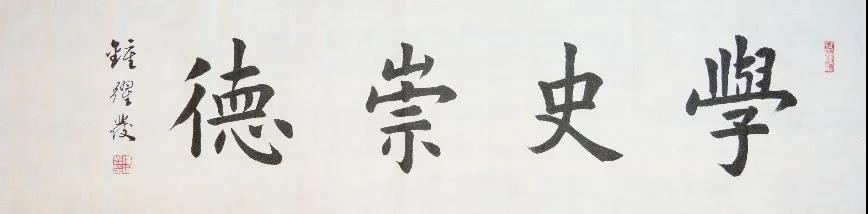 學史崇德
鍾耀發